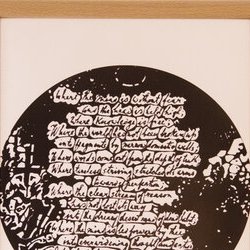 Where the mind is without fear
and the head is held high
Where knowledge is free
Where the world has not been broken up
into fragments by narrow domestic walls
Where words come out from the depth of truth
Where tireless striving stretches its arms
towards perfection
Where the clear stream of reason
has not lost its way
into the dreary desert sand of dead habit
Where the mind is led forward by thee
into ever-widening thought and